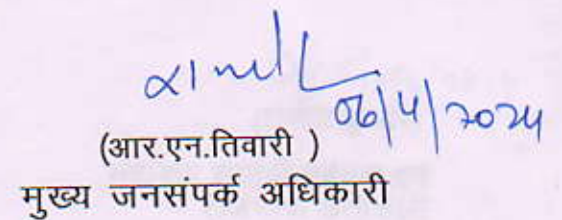 06/4/2024
(आर.एन.तिवारी )
मुख्य जनसंपर्क अधिकारी